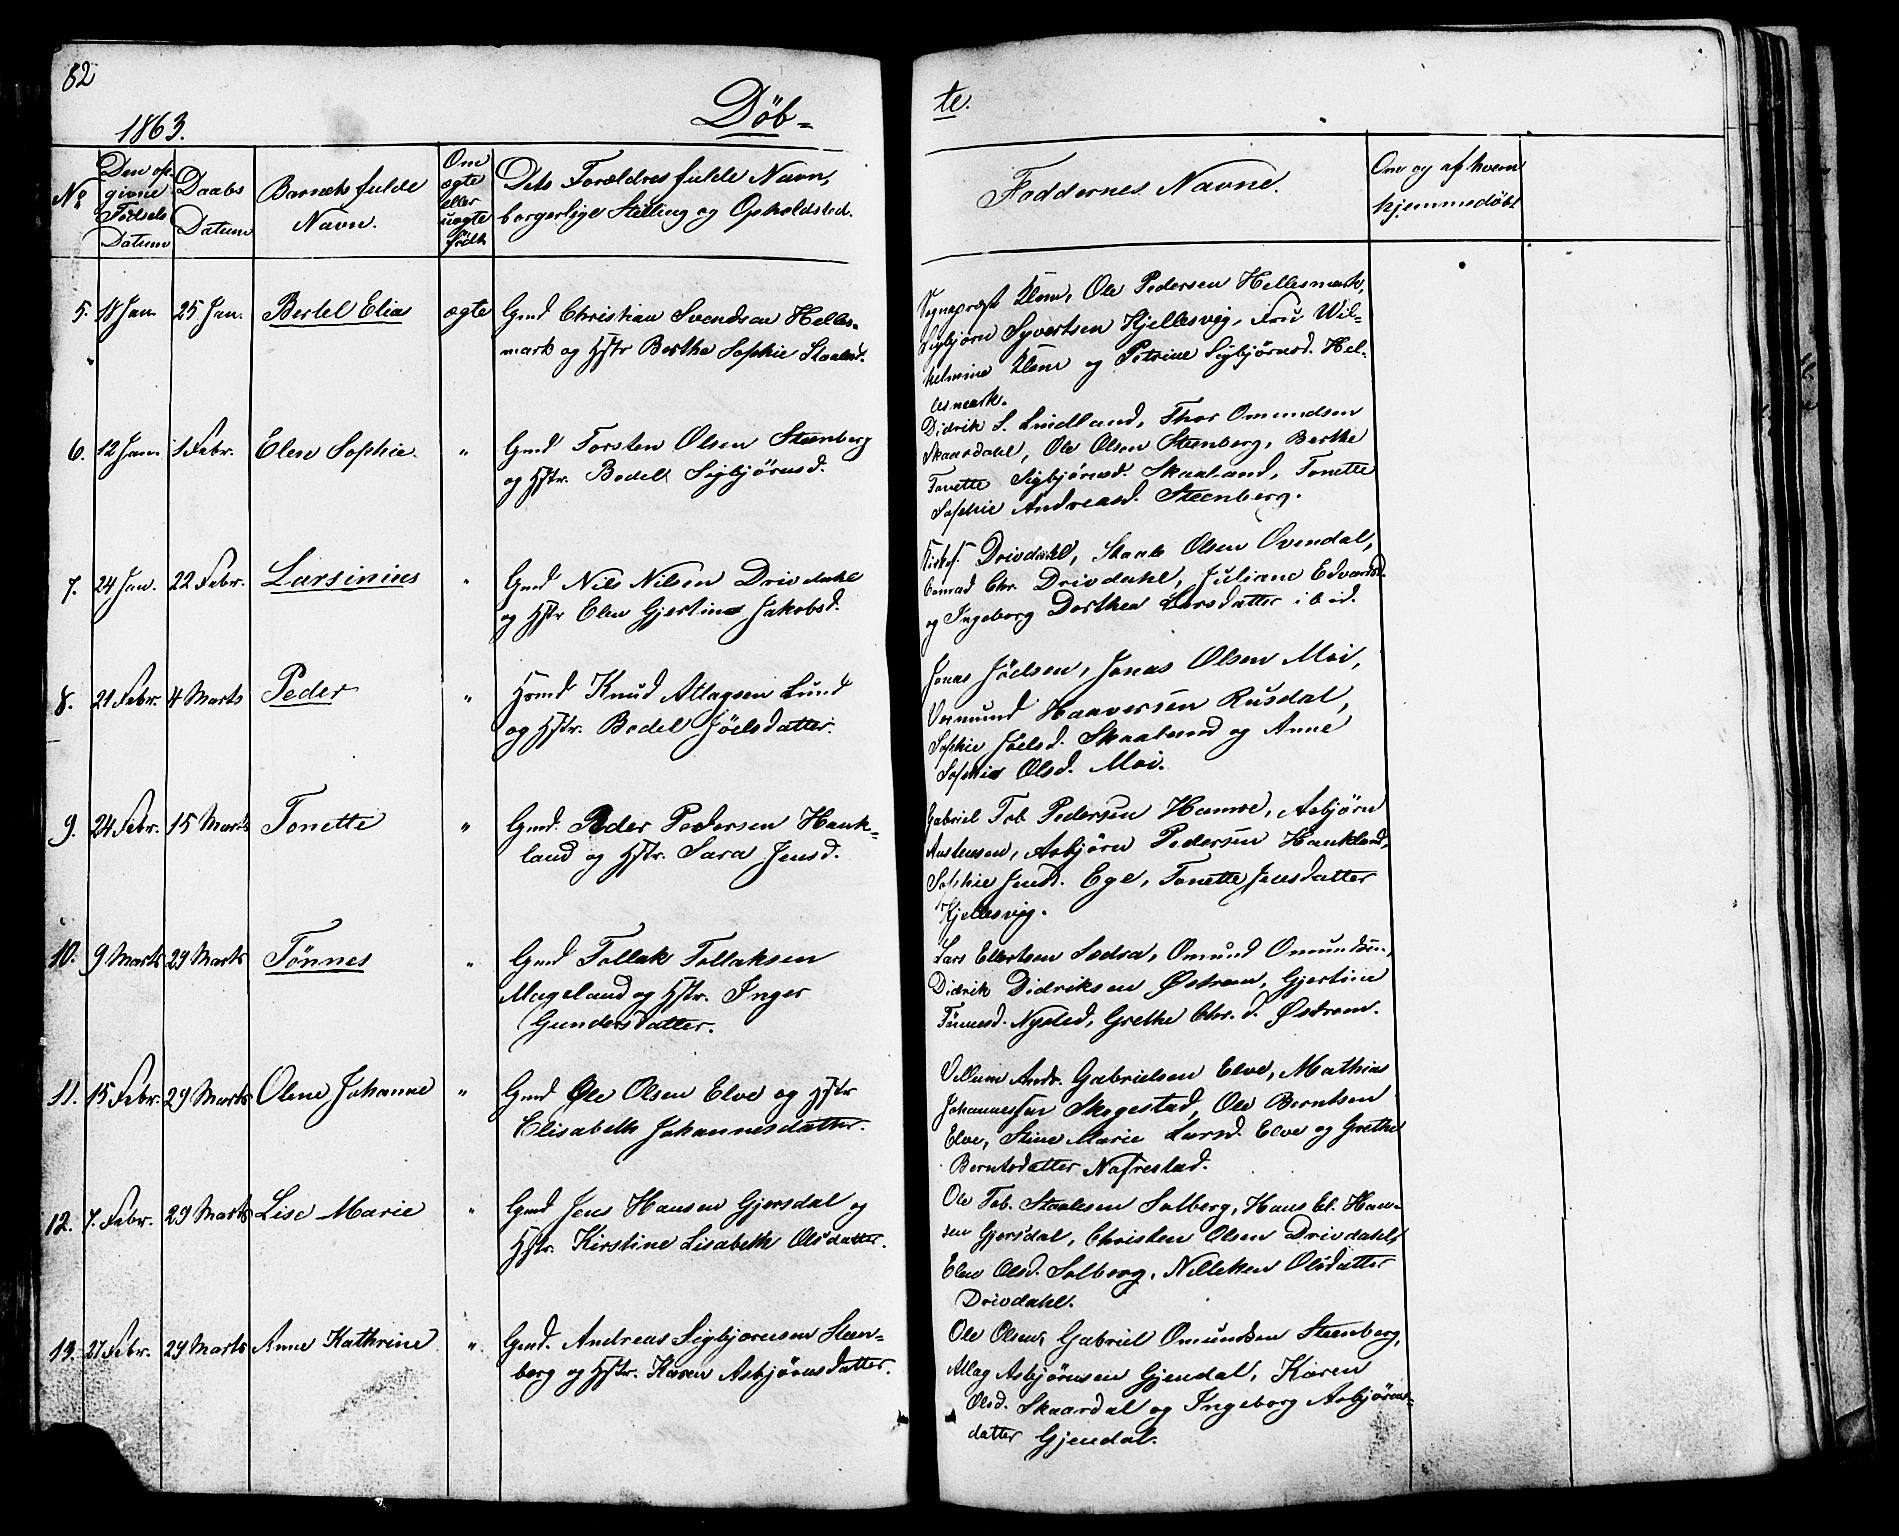 82
1863.
Døb-
te.
No
Den op-
givne
Fødsels
Datum
Daabs
Datum
Barnets fulde
Navn.
Om
ægte
eller
uægte
født
Dets Forældres fulde Navn,
borgerlige Stilling og Opholdsted.
Faddernes Navne.
Om og af hvem
hjemmedøbt
5. 18 Jan. 25 Jan. Bertel Elias ægte Gmd Christian Svendsen Helles-
mark og Hstr Berthe Sophie Skaaland.
Sognepræst Klem, Ole Pedersen Hellesmark,
Sigbjørn Syvertsen Kjellesvig, Fru Wil-
helmine Klem og Petrine Sigbjørnsd. Hel-
lesmark.
6. 12 Jan. 1 Febr. Elen Sophie. " Gmd Torsten Olsen Steenberg
og Hstr. Bodel Sigbjørnsd.
Didrik S. Lindland, Thor Omundsen
Skaardahl, Ole Olsen Steenberg, Berthe
Tonette Sigbjørnsd. Skaaland, Tonette
Sophie Andreasd. Steenberg.
7. 24 Jan. 22 Febr. Larsinius " Gmd Nils Nilsen Drivdahl
og Hstr Elen Gjertine Jakobsd.
Drivdahl, Staale Olsen Ovendal,
Conrad Chr. Drivdahl, Juliane Edvardsd.
og Ingeborg Dorthea Larsdatter ibid.
8. 21 Febr. 4 Marts Peder " Hsmd Knud Atlagsen Lund
og Hstr. Bodel Jöelsdatter.
Jonas Jöelsen, Jonas Olsen Moi,
Vermund Haaversen Rusdal,
Sophie Jöelsd. Skaaland og Anne
Sophie Olsd. Moi.
9. 24 Febr. 15 Marts Tonette " Gmd. Peder Pedersen Hauk-
land og Hstr. Sara Jensd.
Gabriel Tob. Pedersen Hamre, Asbjørn
Austensen, Asbjørn Pedersen Haukland,
Sophie Jensd. Ege, Tonette Jensdatter
Kjellesvig.
10. 9 Marts 29 Marts Tønnes " Gmd Tollak Tollaksen
Mageland og Hstr. Inger
Gundersdatter.
Lars Ellertsen Sædra, Omund Omundsen,
Didrik Didriksen Østrem, Gjertine
Tønnesd. Nysted, Grethe Chr. d. Østrem.
11. 15 Febr. 29 Marts Olene Johanne " Gmd Ole Olsen Elve og Hstr
Elisabeth Johannesdatter.
Villum Andr. Gabrielsen Elve, Mathias
Johannessen Skogestad, Ole Berntsen
Elve, Stine Marie Larsd. Elve og Grethe
Berntsdatter Nafrestad.
12. 7. Febr. 29 Marts Lise Marie " Gmd Jens Hansen Gjersdal og
Hstr. Kirstine Lisabeth Olsdatter.
Ole Tob. Staalesen Solberg, Hans El. Han-
sen Gjersdal, Christen Olsen Drivdahl,
Elen Olsd. Solberg, Nilleken Olsdatter
Drivdahl.
13. 27 Febr. 29 Marts Anne Kathrine " Gmd. Andreas Sigbjørnsen Steen-
berg og Hstr. Karen Asbjørnsdatter.
Ole Olsen, Gabriel Omundsen Steenberg,
Atlag Asbjørnsen Gjendal, Karen
Olsd. Skaardal og Ingeborg Asbjørns-
datter Gjendal.